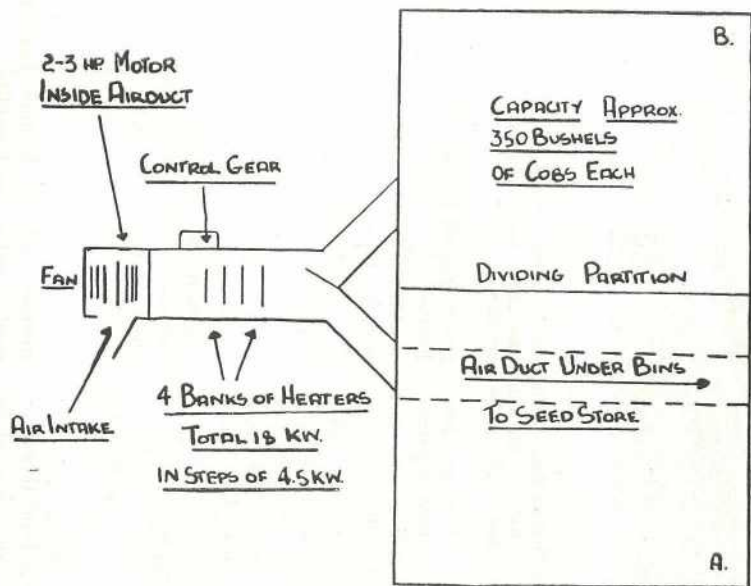 2-3 HP. MOTOR
INSIDE AIRDUCT
CONTROL GEAR
FAN
AIR INTAKE
4 BANKS OF HEATERS
TOTAL 18 KW.
IN STEPS OF 4.5KW.
B.
CAPACITY APPROX.
350 BUSHELS
OF COBS EACH
DIVIDING PARTITION
AIR DUCT UNDER BINS
TO SEED STORE
A.